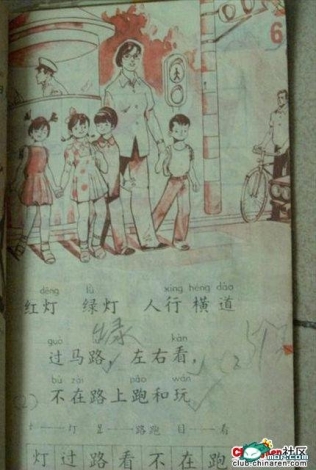 6
dēng lǜ xíng héng dào
红灯 绿灯 人行横道
绿
guò kàn
过马路，左右看，
bù zài pǎo wán
不在路上跑和玩。
灯过路看不在跑
ChinaRen社区
club.chinaren.com